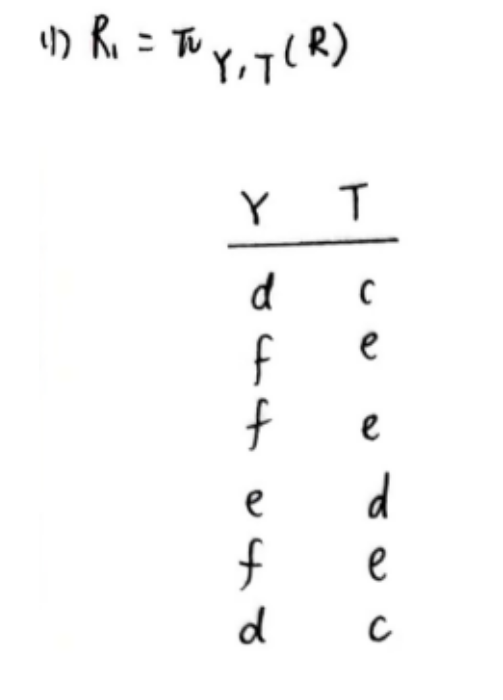 (1) R₁ = π Y,T (R)
Y T
d c
f e
f e
e d
f e
d c